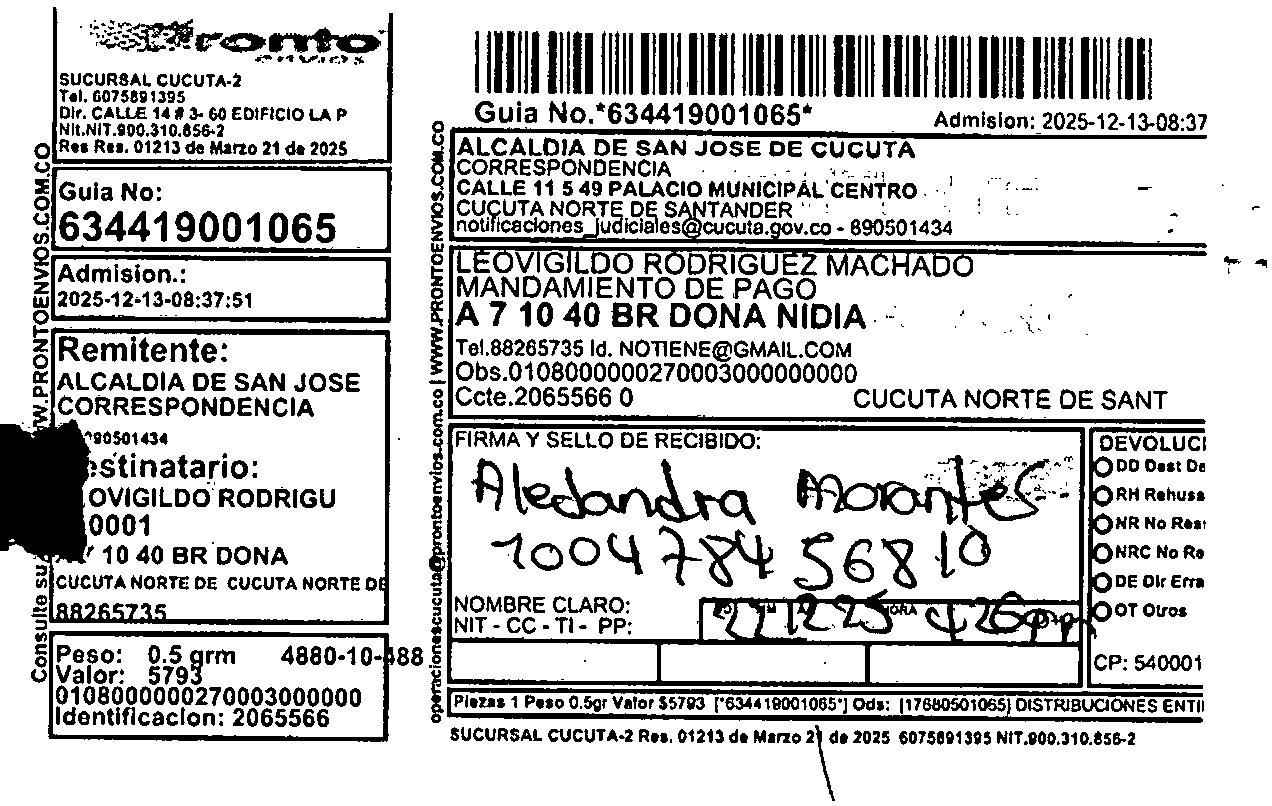 Pronto
envios
SUCURSAL CUCUTA-2
Tel. 6075891395
Dir. CALLE 14 # 3- 60 EDIFICIO LA P
Nit.NIT.900.310.856-2
Res Res. 01213 de Marzo 21 de 2025
Guia No:
634419001065
Admision.:
2025-12-13-08:37:51
Remitente:
ALCALDIA DE SAN JOSE
CORRESPONDENCIA
890501434
estinatario:
OVIGILDO RODRIGU
0001
7 10 40 BR DONA
CUCUTA NORTE DE CUCUTA NORTE DE
88265735
Peso: 0.5 grm 4880-10-488
Valor: 5793
01080000002700030000000
Identificacion: 2065566
Consulte su
WW.PRONTOENVIOS.COM.CO
operacionescucuta@prontoenvios.com.co | WWW.PRONTOENVIOS.COM.CO
Guia No.*634419001065*
Admision: 2025-12-13-08:37
ALCALDIA DE SAN JOSE DE CUCUTA
CORRESPONDENCIA
CALLE 11 5 49 PALACIO MUNICIPAL CENTRO
CUCUTA NORTE DE SANTANDER
notificaciones_judiciales@cucuta.gov.co - 890501434
LEOVIGILDO RODRIGUEZ MACHADO
MANDAMIENTO DE PAGO
A 7 10 40 BR DONA NIDIA
Tel.88265735 Id. NOTIENE@GMAIL.COM
Obs.0108000000270003000000000
Ccte.2065566 0 CUCUTA NORTE DE SANT
FIRMA Y SELLO DE RECIBIDO:
Alejandra Morantes
1004784 56810
NOMBRE CLARO:
NIT - CC - TI - PP:
221225 HORA 426pm
DEVOLUCI
DD Dest De
RH Rehusa
NR No Resi
NRC No Re
DE Dir Erra
OT Otros
CP: 540001
Piezas 1 Peso 0.5gr Valor $5793 [*634419001065*] Ods: [17680501065] DISTRIBUCIONES ENTI
SUCURSAL CUCUTA-2 Res. 01213 de Marzo 21 de 2025 6075891395 NIT.900.310.856-2